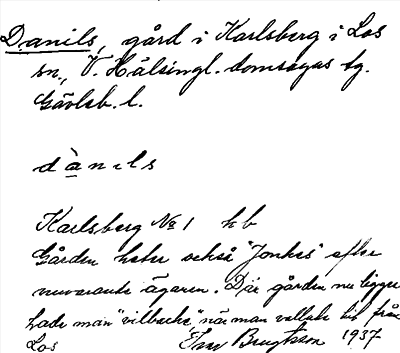 Danils, gård i Karlsberg i Los
sn., V. Hälsingl. domsagas tg.
Gävleb. l.
dànils
Karlsberg No 1 hb
Gården heter också "Jonkes" efter
nuvarande ägaren. Där gården nu ligger
hade man "vilbacke" när man vallade hit från
Los Bengtsson 1937